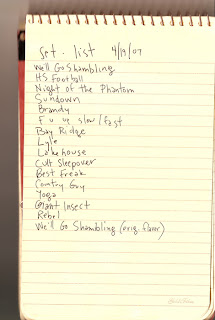 set. list 4/19/07
We'll Go Shambling
HS Football
Night of the Phantom
Sundown
Brandy
F u ve slow/fast
Bay Ridge
Lyle
Lakehouse
Cult Sleepover
Best Freak
Country Guy
Yoga
Giant Insect
Rebel
We'll Go Shambling (orig. flavor)